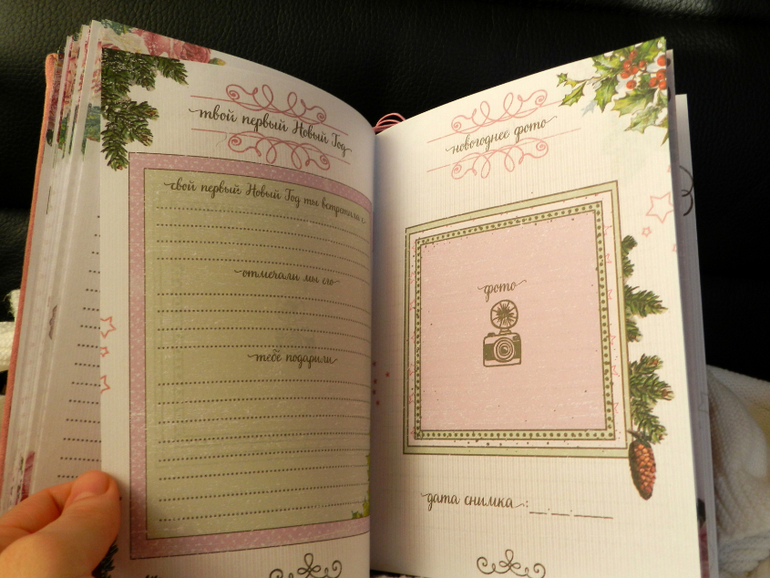 твой первый Новый Год
свой первый Новый Год ты встретила с
отмечали мы его
тебе подарили
новогоднее фото
фото
дата снимка :__.__.____